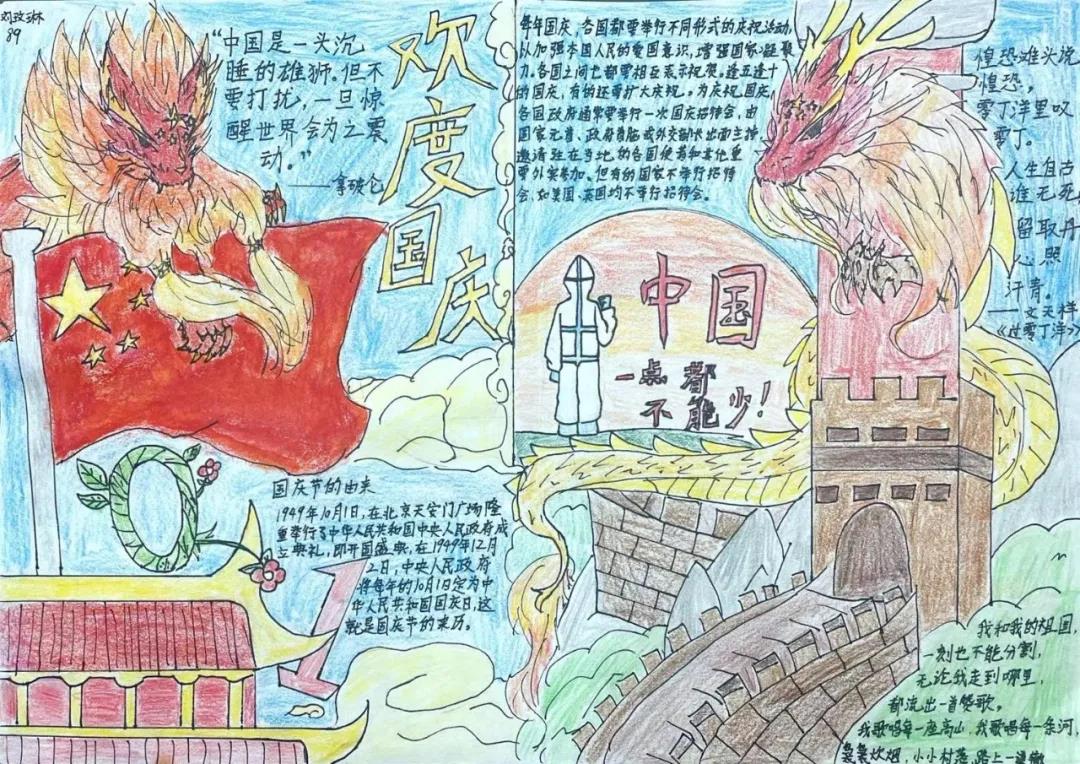 刘玟琳
89
"中国是一头沉
睡的雄狮.但不
要打扰，一旦惊
醒世界会为之震
动。"
——拿破仑
欢度国庆
国庆节的由来
1949年10月1日，在北京天安门广场隆
重举行了中华人民共和国中央人民政府成
立典礼，即开国盛典，在1949年12月
2日，中央人民政府
将每年的10月1日定为中
华人民共和国国庆日，这
就是国庆节的来历。
每年国庆，各国都要举行不同形式的庆祝活动，
以加强本国人民的爱国意识，增强国家凝聚
力。各国之间也都要相互表示祝贺。逢五逢十
的国庆，有的还要扩大庆祝。为庆祝国庆，
各国政府通常要举行一次国庆招待会，由
国家元首、政府首脑或外交部长出面主持，
邀请驻在当地的各国使者和其他重
要外宾参加。但有的国家不举行招待
会，如美国、英国均不举行招待会。
中国
一点都
不能少！
惶恐滩头说
惶恐，
零丁洋里叹
零丁。
人生自古
谁无死，
留取丹
心照
汗青。
——文天祥
《过零丁洋》
我和我的祖国，
一刻也不能分割，
无论我走到哪里，
都流出一首赞歌。
我歌唱每一座高山，我歌唱每一条河，
袅袅炊烟，小小村落，路上一道辙